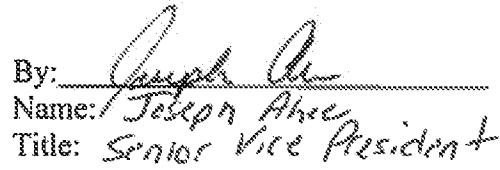 By: Joseph
Name: Joseph
Title: Senior Vice President